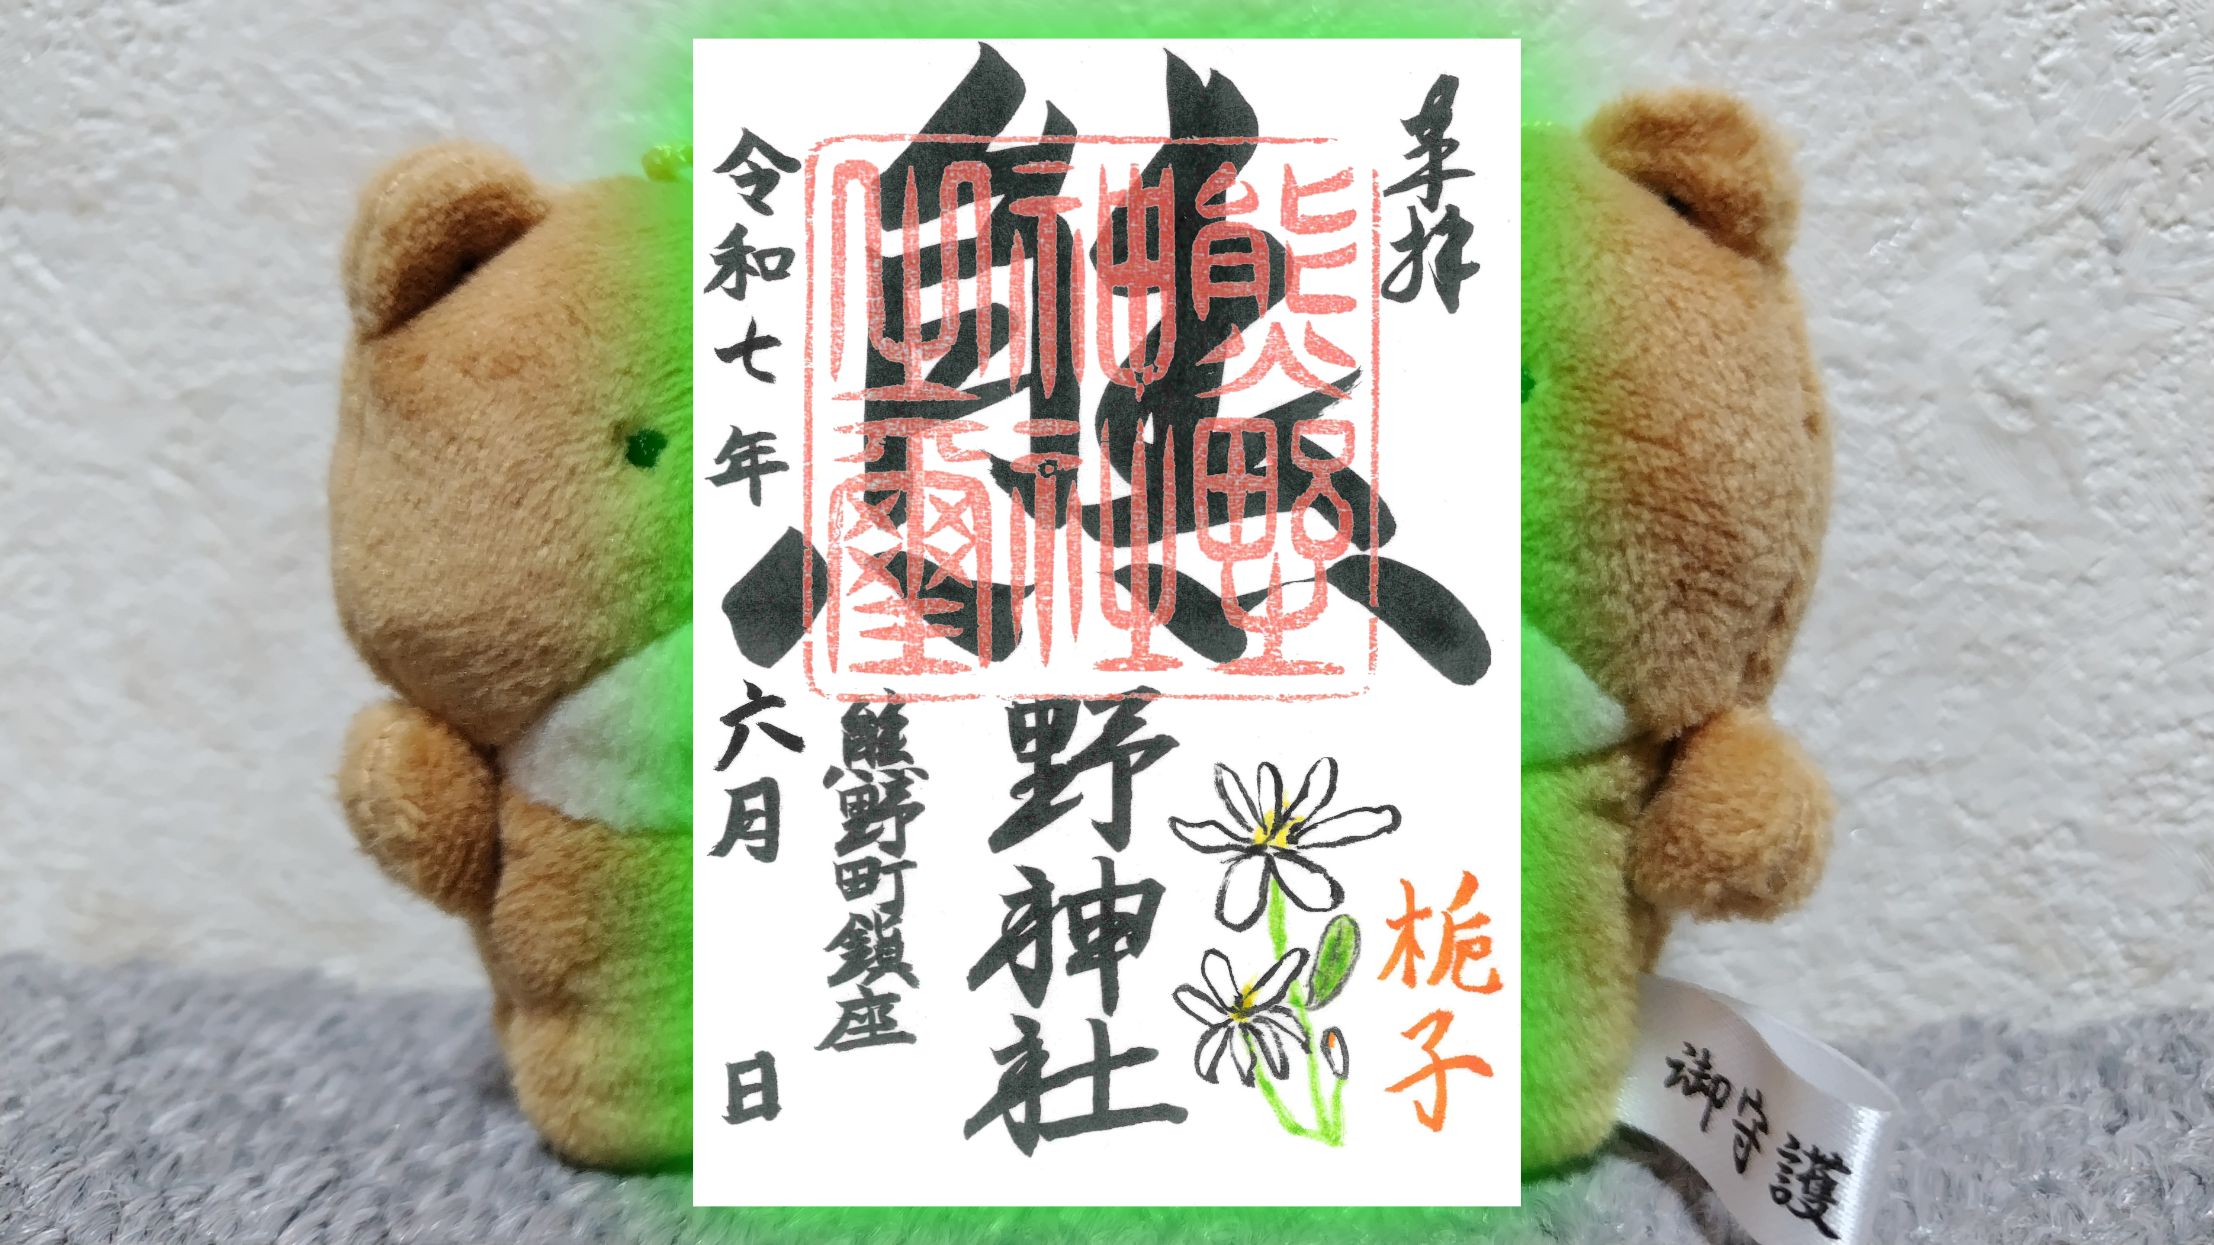 奉拝
熊野神社
栀子
熊野神社璽
熊野町鎮座
令和七年六月 日
御守護